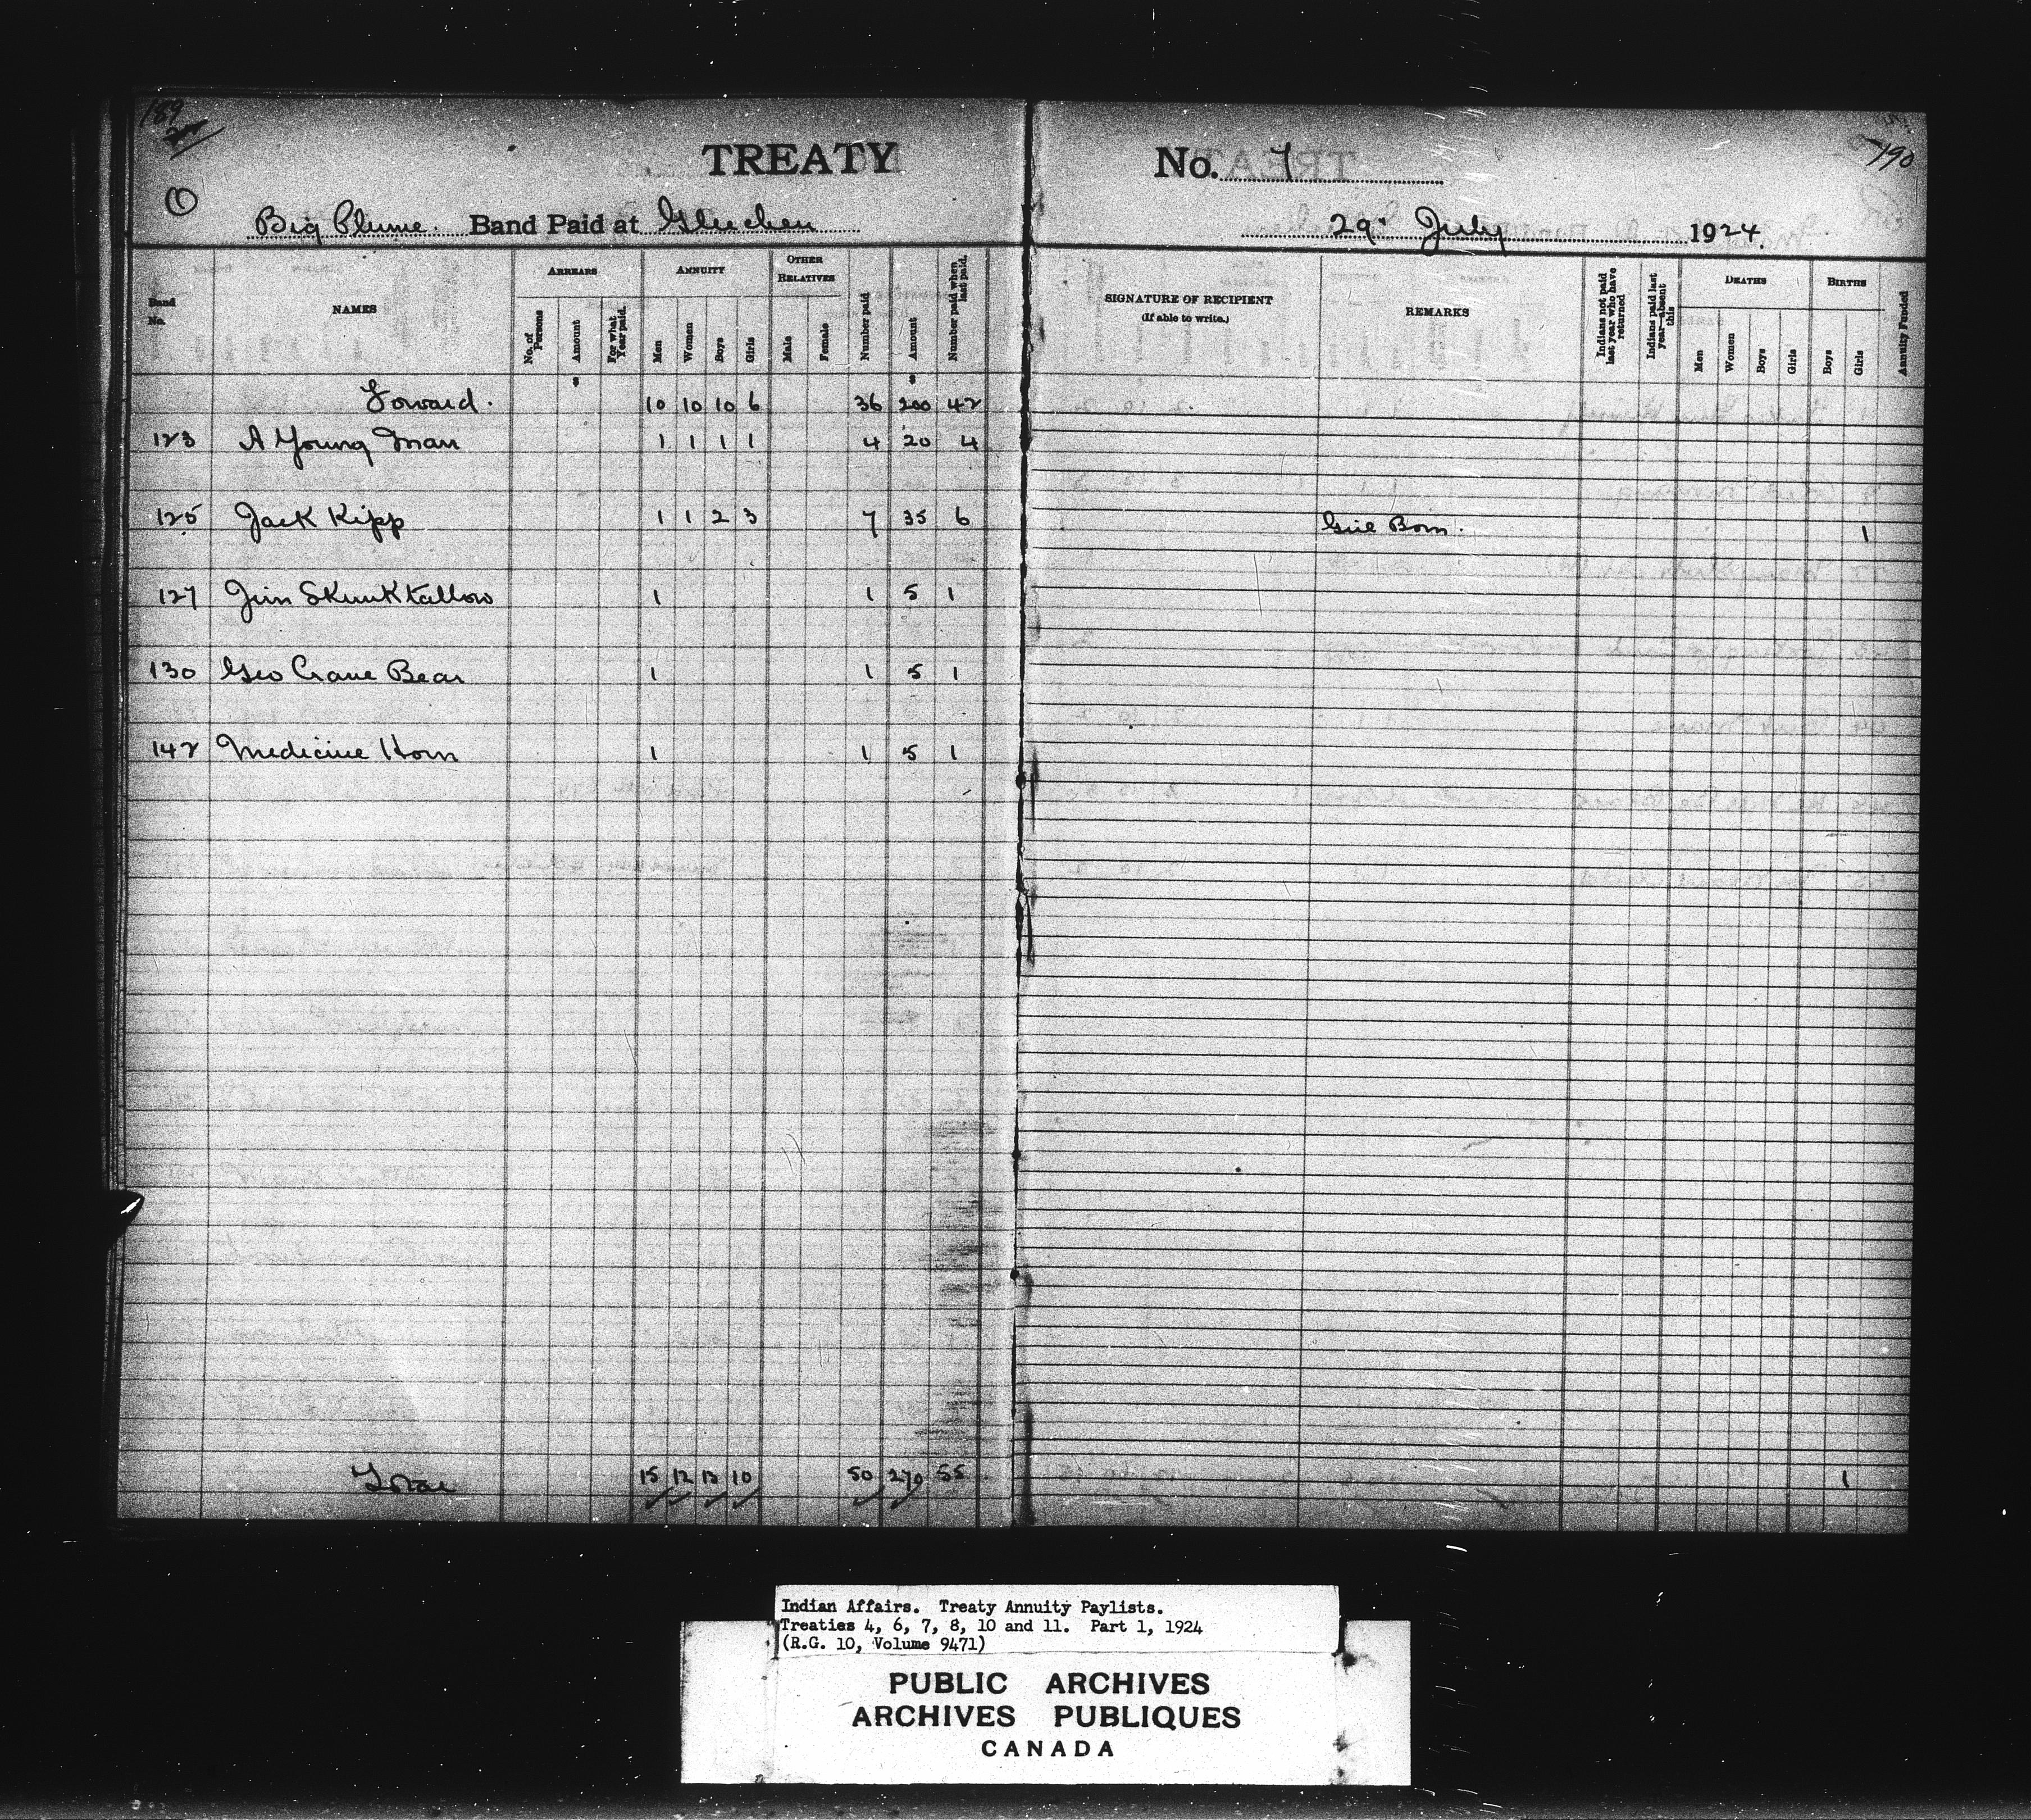 189
190
TREATY No. 7
Big Plume. Band Paid at Gleichen 29" July 1924.
Band No. NAMES ARREARS ANNUITY OTHER RELATIVES Number paid Amount Number paid when last paid. SIGNATURE OF RECIPIENT (If able to write.) REMARKS Indians not paid last year who have returned Indians paid last year—absent this DEATHS BIRTHS Annuity Funded
No. of Persons Amount For what Year paid. Men Women Boys Girls Male Female Men Women Boys Girls Boys Girls
Forward. 10 10 10 6 36 200 42
123 A Young Man 1 1 1 1 4 20 4
125 Jack Kipp 1 1 2 3 7 35 6 Girl Born. 1
127 Jim Skunktallow 1 1 5 1
130 Geo Crane Bear 1 1 5 1
142 Medicine Horn 1 1 5 1
Total 15 12 13 10 50 270 55 1
Indian Affairs. Treaty Annuity Paylists.
Treaties 4, 6, 7, 8, 10 and 11. Part 1, 1924
(R.G. 10, Volume 9471)
PUBLIC ARCHIVES
ARCHIVES PUBLIQUES
CANADA